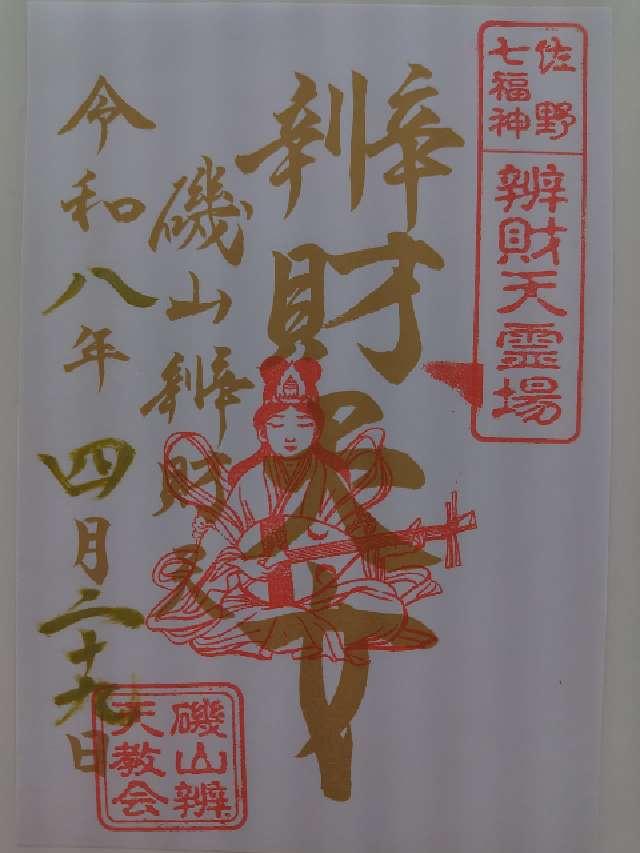 佐野
七福神
辨財天霊場
辨財天
磯山辨財天
令和八年四月二十九日
磯山辨
天教会